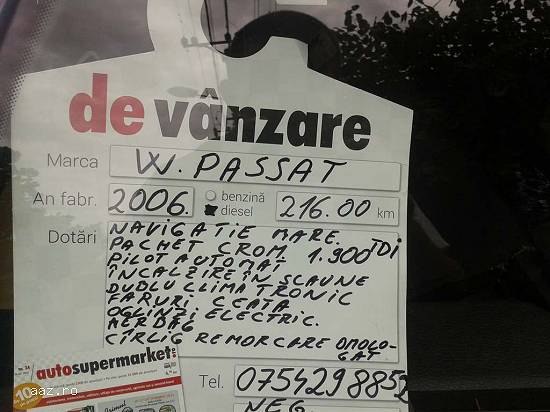 de vânzare
Marca W. PASSAT
An fabr. 2006. benzină diesel 216.00 km
Dotări NAVIGATIE MARE.
PACHET CROM 1.900 TDI
PILOT AUTOMAT
ÎNCALZIRE ÎN SCAUNE
DUDLU CLIMATRONIC
FARURI CEATA
OGLINZI ELECTRIC.
AERBAG
CÎRLIG REMORCARE OMOLO-
GAT
autosupermarket
10
Tel. 0754298852
NEG
aaz.ro